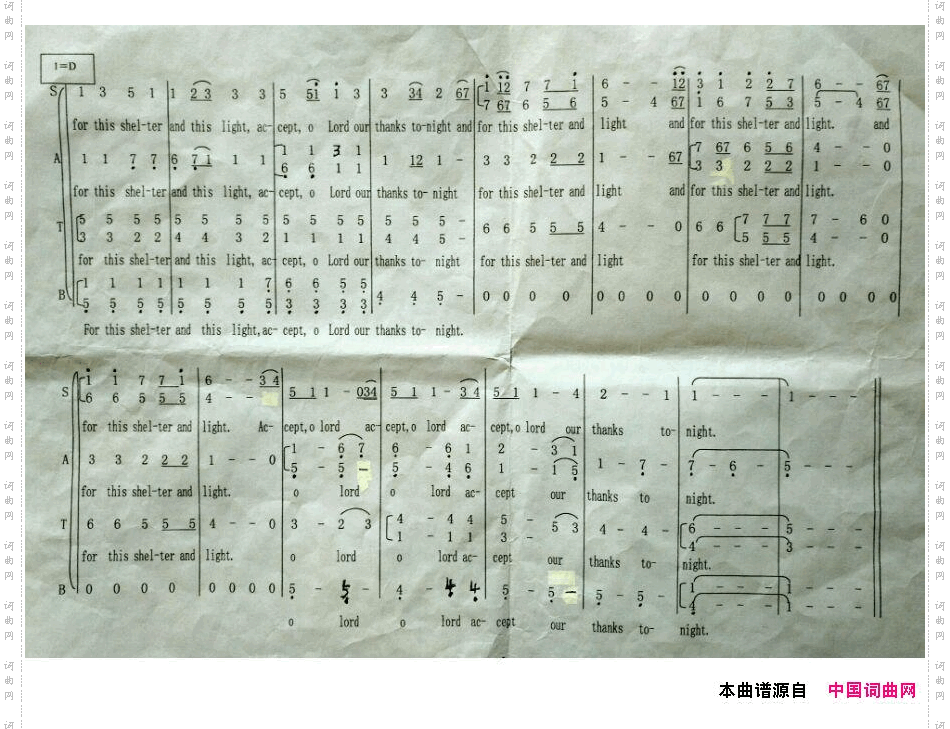 1=D
S 1 3 5 1 1 2 3 3 3 5 51 1 3 3 34 2 67 1 12 7 7 1 6 - - 12 3 1 2 2 7 6 - - 67
7 67 6 5 6 5 - 4 67 1 6 7 5 3 5 - 4 67
for this shel-ter and this light, ac- cept, o Lord our thanks to-night and for this shel-ter and light and for this shel-ter and light. and
A 1 1 7 7 6 7 1 1 1 1 1 3 1 1 12 1 - 3 3 2 2 2 1 - - 67 7 67 6 5 6 4 - - 0
6 6 1 1 3 3 2 2 2 1 - - 0
for this shel-ter and this light, ac- cept, o Lord our thanks to- night for this shel-ter and light and for this shel-ter and light.
T 5 5 5 5 5 5 5 5 5 5 5 5 5 5 5 - 6 6 5 5 5 4 - - 0 6 6 7 7 7 7 - 6 0
3 3 2 2 4 4 3 2 1 1 1 1 4 4 5 - 5 5 5 4 - - 0
for this shel-ter and this light, ac- cept, o Lord our thanks to- night for this shel-ter and light for this shel-ter and light.
B 1 1 1 1 1 1 1 7 6 6 5 5 4 4 5 - 0 0 0 0 0 0 0 0 0 0 0 0 0 0 0 0
5 5 5 5 5 5 5 5 3 3 3 3
For this shel-ter and this light, ac- cept, o Lord our thanks to- night.
S 1 1 7 7 1 6 - - 3 4 5 1 1 - 034 5 1 1 - 3 4 5 1 1 - 4 2 - - 1 1 - - - 1 - - -
6 6 5 5 5 4 - -
for this shel-ter and light. Ac- cept, o lord ac- cept, o lord ac- cept, o lord our thanks to- night.
A 3 3 2 2 2 1 - - 0 1 - 6 7 6 - 6 1 2 - 3 1 1 - 7 - 7 - 6 - 5 - - -
5 - 5 - 5 - 4 6 1 - 1 5
for this shel-ter and light. o lord o lord ac- cept our thanks to night.
T 6 6 5 5 5 4 - - 0 3 - 2 3 4 - 4 4 5 - 5 3 4 - 4 - 6 - - - 5 - - -
1 - 1 1 3 - 4 - - - 3 - - -
for this shel-ter and light. o lord o lord ac- cept our thanks to- night.
B 0 0 0 0 0 0 0 0 5 - 5 4 - 4 4 5 - 5 - 5 - 5 - 1 - - - 1 - - -
4 - - - 1 - - -
o lord o lord ac- cept our thanks to- night.
本曲谱源自 中国词曲网